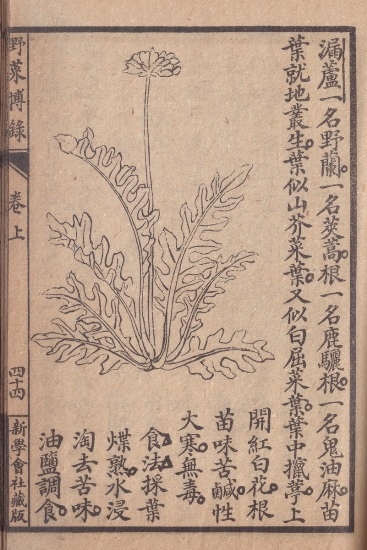 漏蘆一名野蘭一名莢蒿根一名鹿驪根一名鬼油麻苗
葉就地叢生葉似山芥菜葉又似白屈菜葉葉中攛葶上
開紅白花根
苗味苦鹹性
大寒無毒
食法採葉
煠熟水浸
淘去苦味
油鹽調食
野菜博錄
卷上
四十四
新學會社藏版